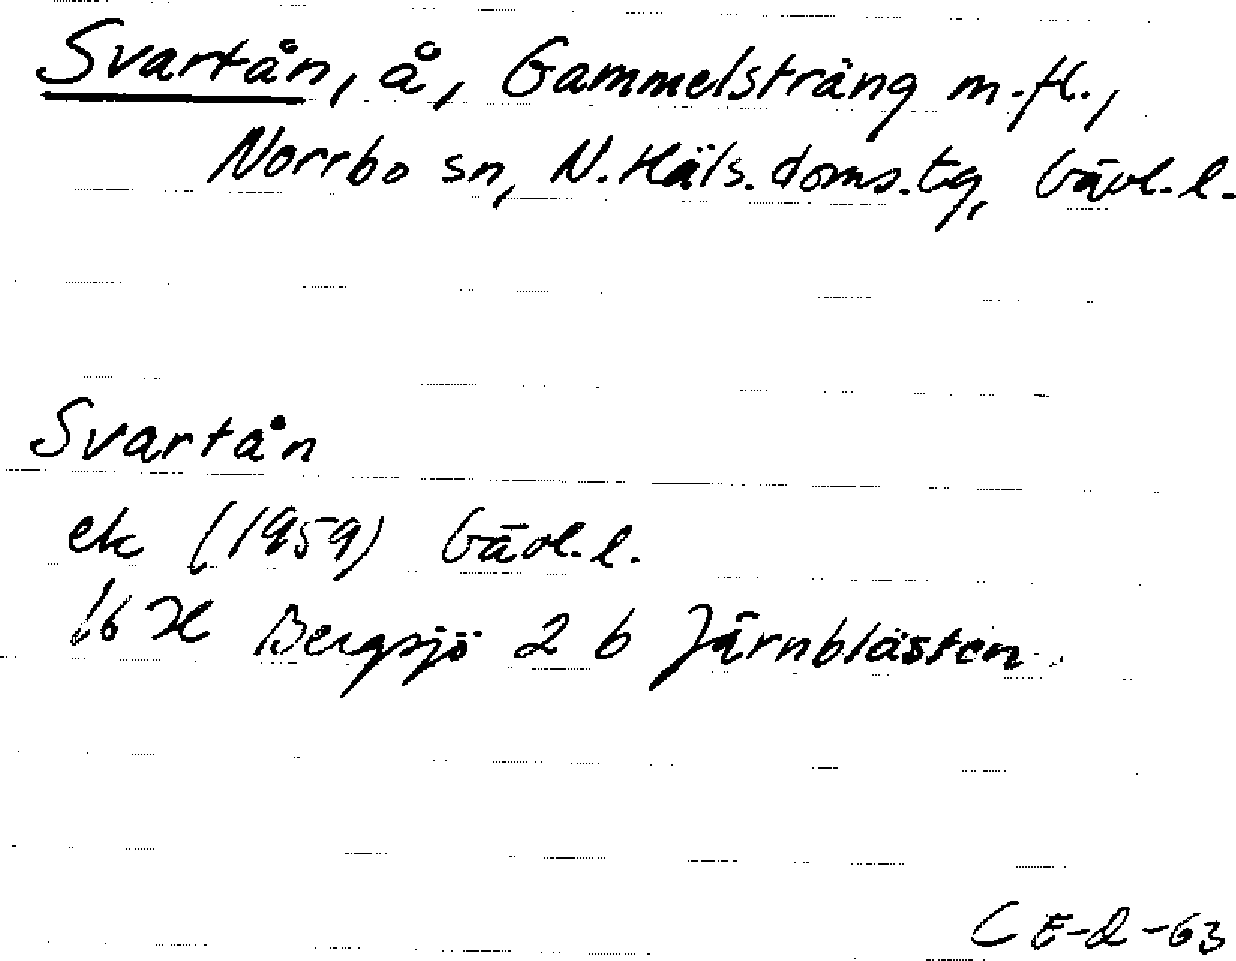 Svartån, å, Gammelsträng m.fl.,
Norrbo sn, N.Häls.doms.tg, Gävl.l.
Svartån
ek (1959) Gävl.l.
16 H Bergsjö 2 b Järnblästen
C E-d -63